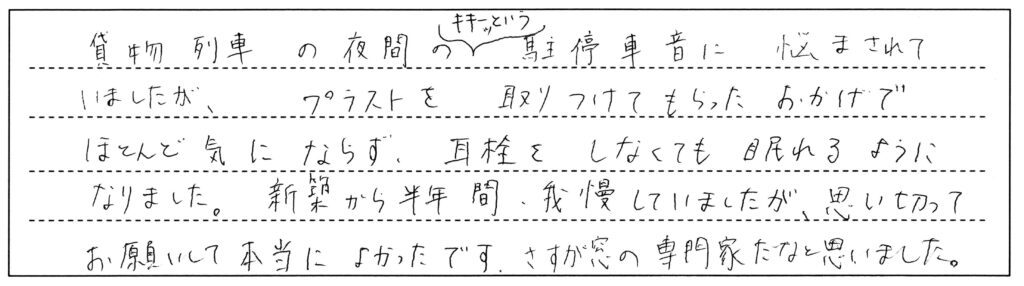 貨物列車の夜間のキキーッという駐停車音に悩まされて
いましたが、プラストを取りつけてもらったおかげで
ほとんど気にならず、耳栓をしなくても眠れるように
なりました。新築から半年間、我慢していましたが、思い切って
お願いして本当によかったです。さすが窓の専門家だなと思いました。